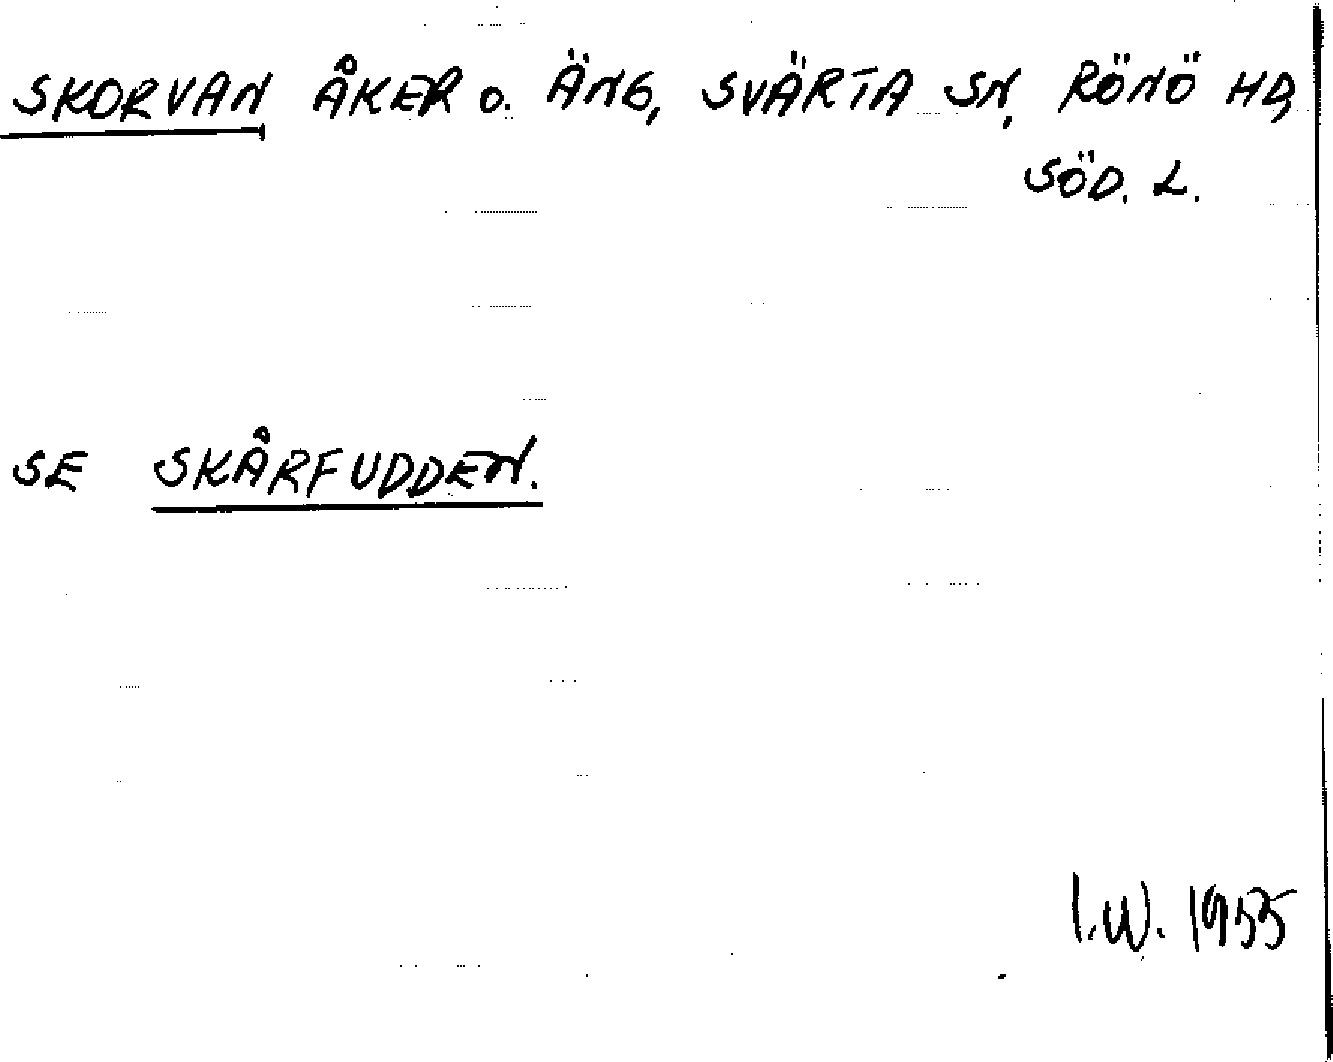 SKORVAN ÅKER o. ÄNG, SVÄRTA SN, RÖNÖ HD,
SÖD. L.
SE SKÅRFUDDEN.
I.W. 1955